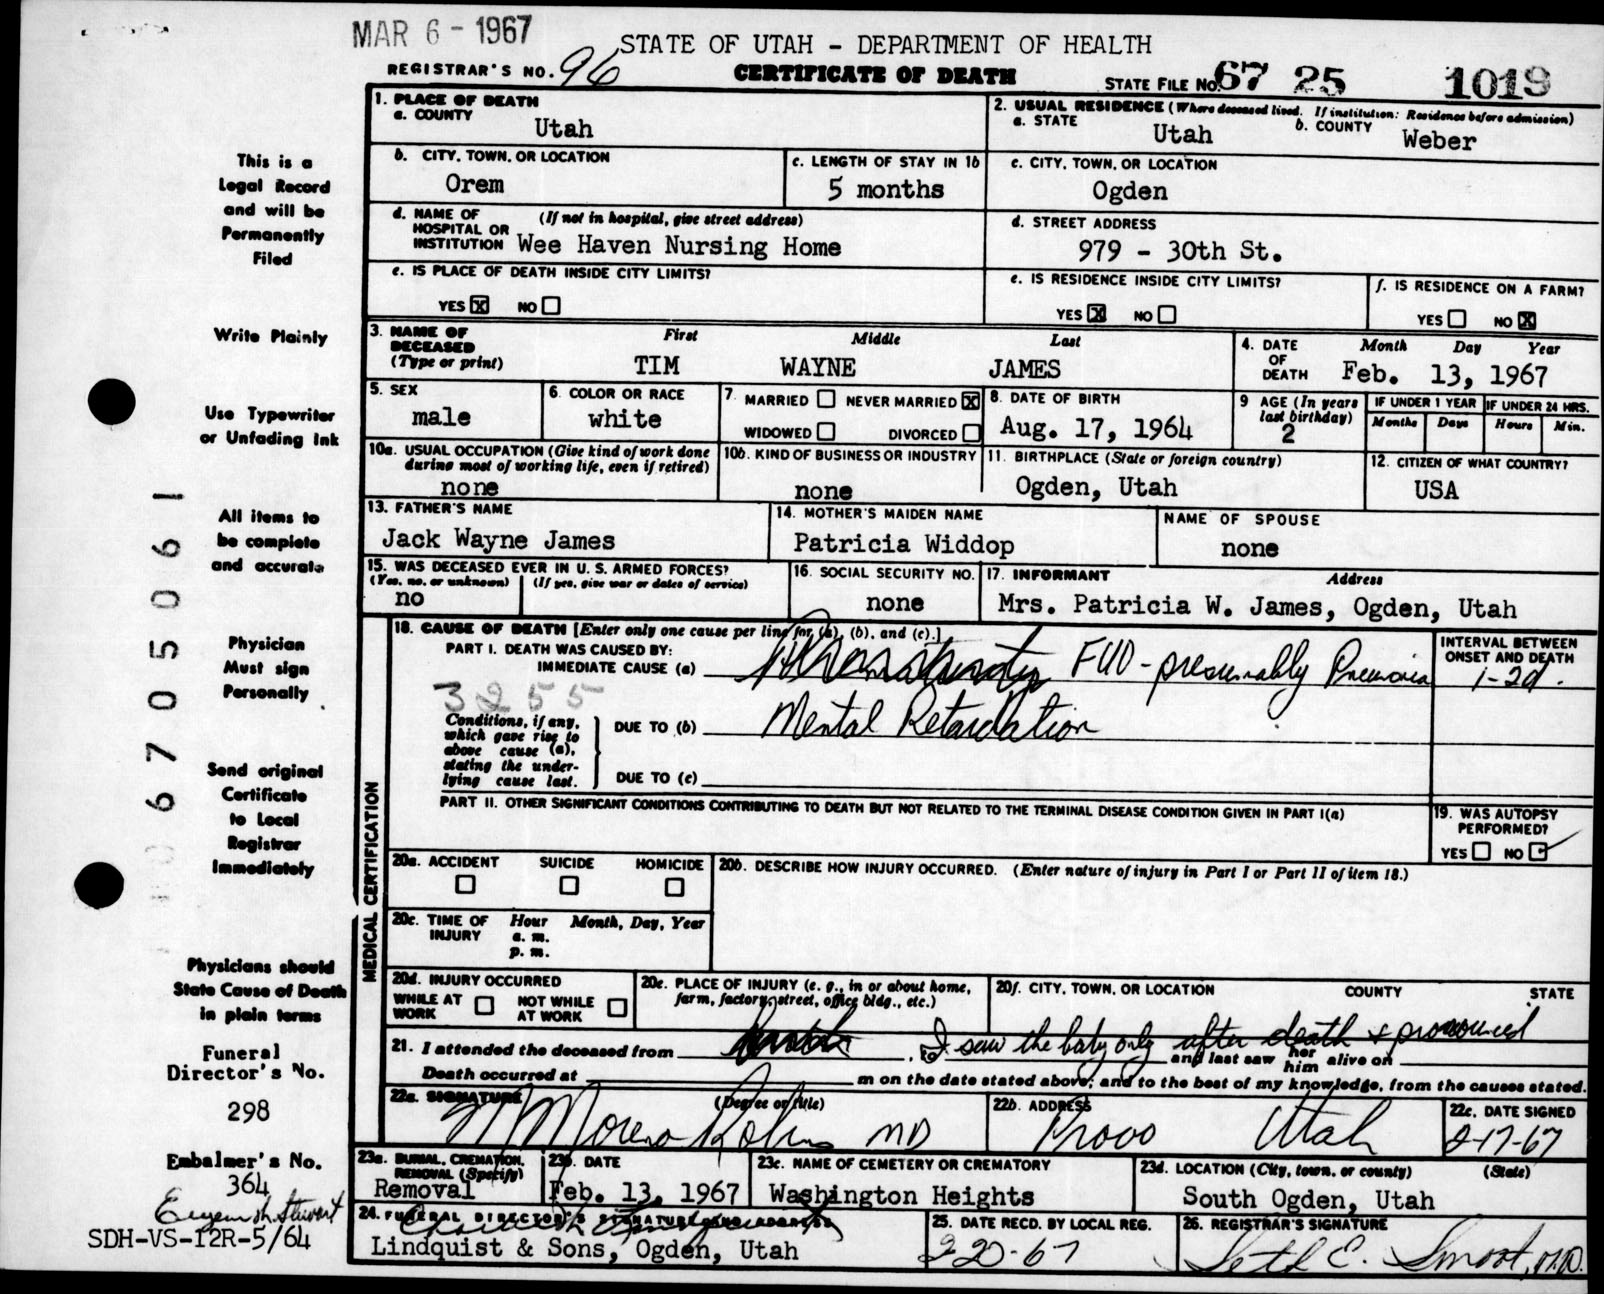 MAR 6 - 1967
STATE OF UTAH - DEPARTMENT OF HEALTH
REGISTRAR'S NO. 96 CERTIFICATE OF DEATH STATE FILE NO. 67 25 1019
1. PLACE OF DEATH
a. COUNTY
Utah
2. USUAL RESIDENCE (Where deceased lived. If institution: Residence before admission)
a. STATE Utah b. COUNTY Weber
b. CITY, TOWN, OR LOCATION
Orem
c. LENGTH OF STAY IN 1b
5 months
c. CITY, TOWN, OR LOCATION
Ogden
d. NAME OF (If not in hospital, give street address)
HOSPITAL OR
INSTITUTION Wee Haven Nursing Home
d. STREET ADDRESS
979 - 30th St.
e. IS PLACE OF DEATH INSIDE CITY LIMITS?
YES X NO
e. IS RESIDENCE INSIDE CITY LIMITS?
YES X NO
f. IS RESIDENCE ON A FARM?
YES NO X
3. NAME OF First Middle Last
DECEASED
(Type or print) TIM WAYNE JAMES
4. DATE Month Day Year
OF
DEATH Feb. 13, 1967
5. SEX
male
6. COLOR OR RACE
white
7. MARRIED NEVER MARRIED X
WIDOWED DIVORCED
8. DATE OF BIRTH
Aug. 17, 1964
9 AGE (In years
last birthday)
2
IF UNDER 1 YEAR IF UNDER 24 HRS.
Months Days Hours Min.
10a. USUAL OCCUPATION (Give kind of work done
during most of working life, even if retired)
none
10b. KIND OF BUSINESS OR INDUSTRY
none
11. BIRTHPLACE (State or foreign country)
Ogden, Utah
12. CITIZEN OF WHAT COUNTRY?
USA
13. FATHER'S NAME
Jack Wayne James
14. MOTHER'S MAIDEN NAME
Patricia Widdop
NAME OF SPOUSE
none
15. WAS DECEASED EVER IN U. S. ARMED FORCES?
(Yes, no, or unknown) (If yes, give war or dates of service)
no
16. SOCIAL SECURITY NO.
none
17. INFORMANT Address
Mrs. Patricia W. James, Ogden, Utah
MEDICAL CERTIFICATION
18. CAUSE OF DEATH [Enter only one cause per line for (a), (b), and (c).]
PART I. DEATH WAS CAUSED BY:
IMMEDIATE CAUSE (a) FUO - presumably Pneumonia
INTERVAL BETWEEN
ONSET AND DEATH
1-2d.
3255
Conditions, if any,
which gave rise to
above cause (a),
stating the under-
lying cause last.
DUE TO (b) Mental Retardation
DUE TO (c)
PART II. OTHER SIGNIFICANT CONDITIONS CONTRIBUTING TO DEATH BUT NOT RELATED TO THE TERMINAL DISEASE CONDITION GIVEN IN PART I(a)
19. WAS AUTOPSY
PERFORMED?
YES NO ✓
20a. ACCIDENT SUICIDE HOMICIDE
20b. DESCRIBE HOW INJURY OCCURRED. (Enter nature of injury in Part I or Part II of item 18.)
20c. TIME OF Hour Month, Day, Year
INJURY a. m.
p. m.
20d. INJURY OCCURRED
WHILE AT WORK NOT WHILE AT WORK
20e. PLACE OF INJURY (e. g., in or about home,
farm, factory, street, office bldg., etc.)
20f. CITY, TOWN, OR LOCATION COUNTY STATE
I saw the baby only after death & pronounced
21. I attended the deceased from , to and last saw her him alive on
Death occurred at m on the date stated above; and to the best of my knowledge, from the causes stated.
22a. SIGNATURE (Degree or title)
MD
22b. ADDRESS
Provo Utah
22c. DATE SIGNED
2-17-67
23a. BURIAL, CREMATION,
REMOVAL (Specify)
Removal
23b. DATE
Feb. 13, 1967
23c. NAME OF CEMETERY OR CREMATORY
Washington Heights
23d. LOCATION (City, town, or county) (State)
South Ogden, Utah
24. FUNERAL DIRECTOR'S SIGNATURE AND ADDRESS
Lindquist & Sons, Ogden, Utah
25. DATE RECD. BY LOCAL REG.
2-20-67
26. REGISTRAR'S SIGNATURE
Seth E. Smoot, M.D.
This is a
Legal Record
and will be
Permanently
Filed
Write Plainly
Use Typewriter
or Unfading Ink
All items to
be complete
and accurate
Physician
Must sign
Personally
Send original
Certificate
to Local
Registrar
Immediately
Physicians should
State Cause of Death
in plain terms
Funeral
Director's No.
298
Embalmer's No.
364
Eugene H. Stewart
SDH-VS-12R-5/64
006705061